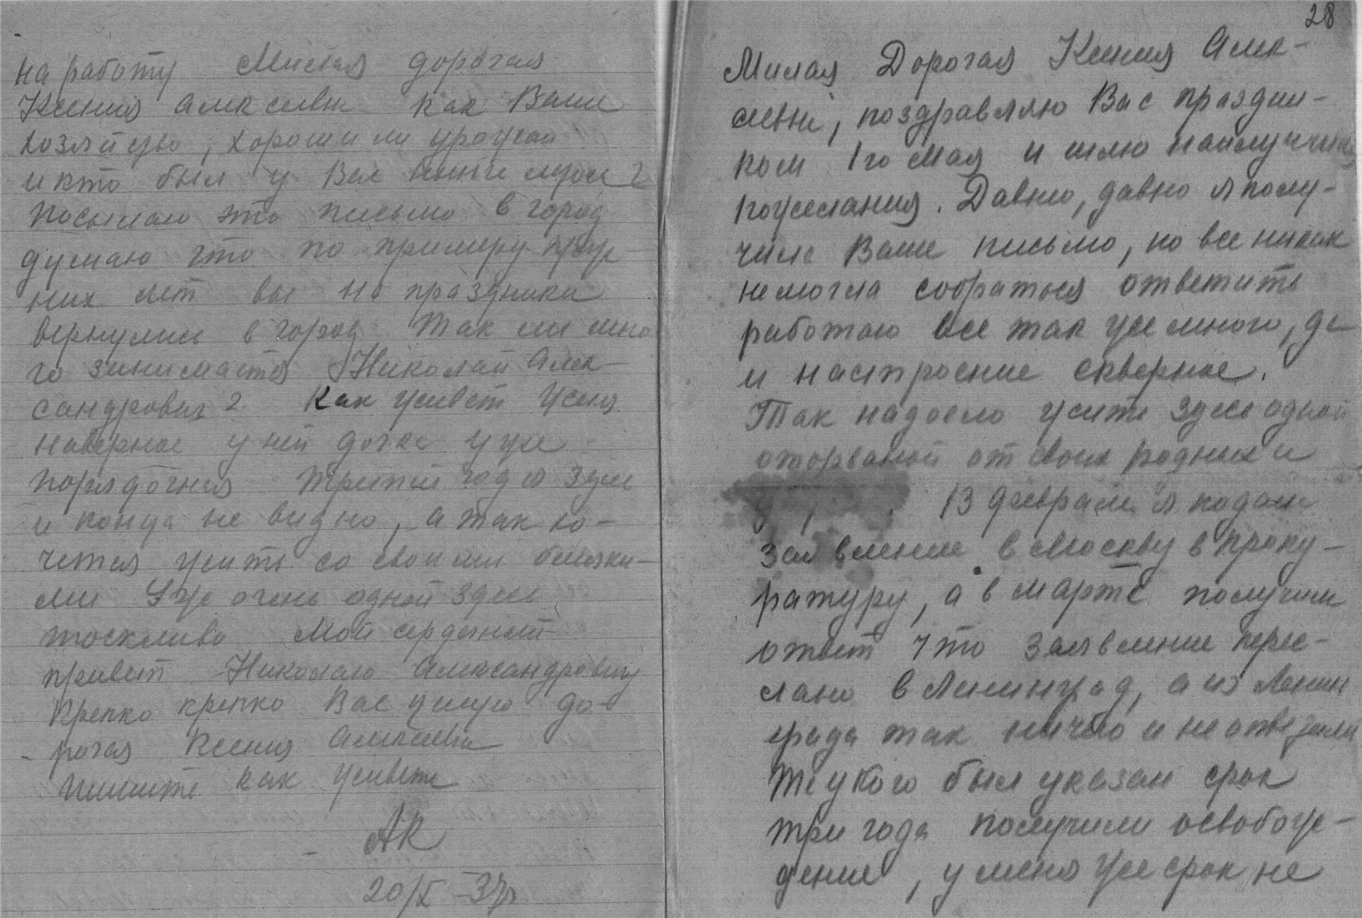 на работу Милая дорогая
Ксения Алексевн как Ваше
хозяйсво, хороши ли урожаи
и кто был у Вас
посылаю это письмо в город
думаю что по примеру преж-
них лет вы на праздники
вернулись в город Так ли мно
го занимаетя Николай Алек-
сандрович? Как живет Женя
наверное у ней дочка уже
порядочная третий год я здесь
и конца не видно, а так хо-
четця жить со своими близки-
ми Уже очень одной здесь
тоскливо Мой сердечный
привет Николаю Александровичу
Крепко крепко Вас целую до-
рогая Ксения Алексевна
пишите как живете
АК
20/X -37г
28
Милая Дорогая Ксения Алек-
севна, поздравляю Вас праздни-
ком 1го мая и шлю наилучшия
пожелания. Давно, давно я полу-
чила Ваше письмо, но все никак
немогла собраться ответить
работаю все так же много, да
и настроение скверное.
Так надоело жить здесь одной
оторваной от своих родных и
13 февраля я подала
заявление в Москву в проку-
ратуру, а в марте получила
ответ что заявление пере-
слано в Ленинград, а из Ленин
града так ничего и не ответили
Те у кого был указан срок
три года получили освобож-
дение, у меня же срок не